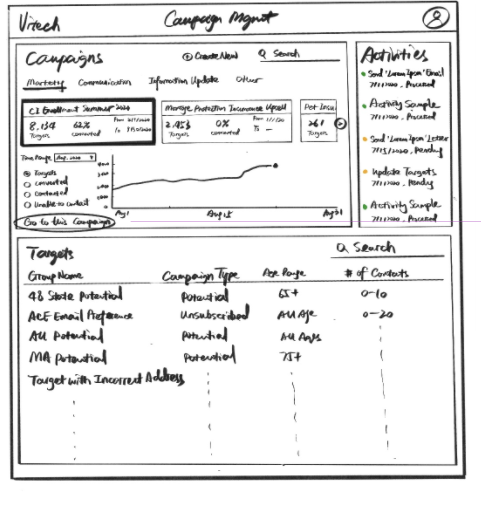 Vitech
Campaign Mgmt
Campaigns
Create New
Search
Marketing Communication Information Update Other
CI Enrollment Summer 2020
8,134 62%
Targets converted
Mortgage Protection Insurance Upsell
2,453 0%
Targets converted
Pet Insu
261
Targets
Time Range Aug. 2020
Targets
Converted
Contacted
Unable to contact
Go to this Campaign
Aug 1 Aug 15 Aug 31
Activities
Send 'Lorem Ipsum' Email
7/11/2020, Proceed
Activity Sample
7/11/2020, Proceed
Send 'Lorem Ipsum' Letter
7/15/2020, Pending
Update Targets
7/11/2020, Pending
Activity Sample
7/11/2020, Proceed
Targets
Search
Group Name Campaign Type Age Range # of Contacts
48 State Potential Potential 65+ 0-10
ACE Email Preference Unsubscribed All Age 0-20
AU Potential Potential All Ages
MA Potential Potential 75+
Target with Incorrect Address